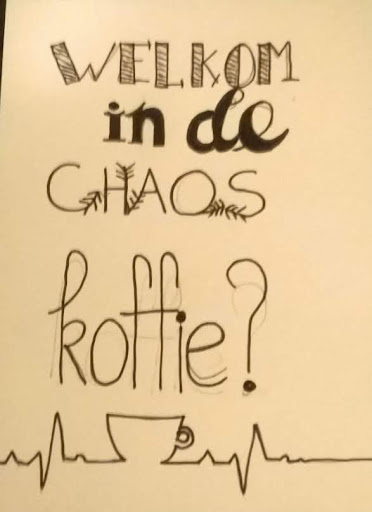 WELKOM
in de
CHAOS
koffie?